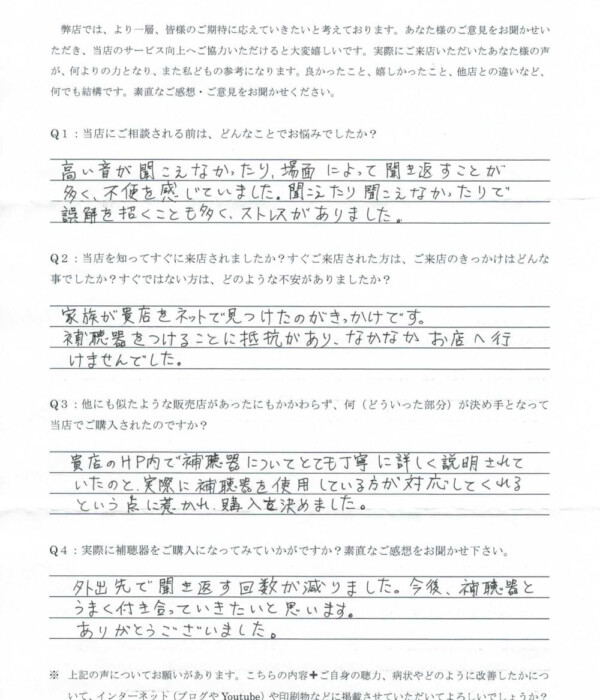 弊店では、より一層、皆様のご期待に応えていきたいと考えております。あなた様のご意見をお聞かせい
ただき、当店のサービス向上へご協力いただけると大変嬉しいです。実際にご来店いただいたあなた様の声
が、何よりの力となり、また私どもの参考になります。良かったこと、嬉しかったこと、他店との違いなど、
何でも結構です。素直なご感想・ご意見をお聞かせください。
Q1：当店にご相談される前は、どんなことでお悩みでしたか？
高い音が聞こえなかったり、場面によって聞き返すことが
多く、不便を感じていました。聞こえたり聞こえなかったりで
誤解を招くことも多く、ストレスがありました。
Q2：当店を知ってすぐに来店されましたか？すぐご来店された方は、ご来店のきっかけはどんな
事でしたか？すぐではない方は、どのような不安がありましたか？
家族が貴店をネットで見つけたのがきっかけです。
補聴器をつけることに抵抗があり、なかなかお店へ行
けませんでした。
Q3：他にも似たような販売店があったにもかかわらず、何（どういった部分）が決め手となって
当店でご購入されたのですか？
貴店のHP内で補聴器についてとても丁寧に詳しく説明されて
いたのと、実際に補聴器を使用している方が対応してくれる
という点に惹かれ、購入を決めました。
Q4：実際に補聴器をご購入になってみていかがですか？素直なご感想をお聞かせ下さい。
外出先で聞き返す回数が減りました。今後、補聴器と
うまく付き合っていきたいと思います。
ありがとうございました。
※ 上記の声についてお願いがあります。こちらの内容+ご自身の聴力、病状やどのように改善したかにつ
いて、インターネット（ブログや Youtube）や印刷物などに掲載させていただいてよろしいでしょうか？